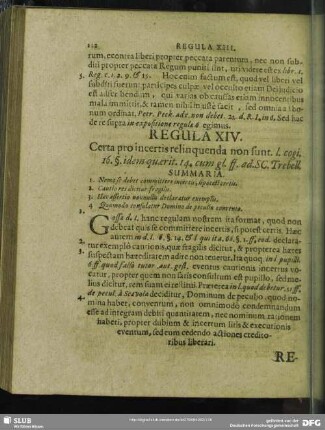 112 REGULA XIII.
rum, econtra liberi propter peccata parentum, nec non subditi
propter peccata Regum puniti sint, uti videre est ex
5. Reg. c. 1. 2. 9. & 15. Hoc enim factum est, quod vel liberi vel
subditi fuerunt participes culpæ, vel
est adscribendum, qui varios ob causas etiam innocentibus
mala immittit, & tamen nihil injustè facit, sed omnia ob bonum
ordinat, Petr. Peck. adr. non debet. 22. d. R. I. in 6. Sed hac
de re supra in expositione regula 6 egimus.
REGULA XIV.
Certa pro incertis relinquenda non sunt. l. cogi.
16. §. idem quærit. 14. cum gl. ff. ad. SC. Trebell.
SUMMARIA.
1. Nemo se debet committere incertis, si potest certis.
2. Cautio res dicitur fragilis.
3. Hoc assertio nonnullis declaratur exemplis.
4 Quomodo consulatur Domino de peculio convento.
1. Glossa d. l. hanc regulam nostram ita format, quod non
debeat quis se committere incertis, si potest certis. Hæc
autem in d. l. 6. §. 14. & l qui ita. 86. §. 1. ff, eod. declaratur
exemplo cautionis, quæ fragilis dicitur, & propterea hæres
suspectam hæreditatem adire non tenetur. Ita quoq. in l. pupilli
6 ff quod falso tutor aut. gest. eventus cautionis incertus vocatur,
propter quem non satis consultum est pupillo,
dicitur, cum suam eize illini Præterea in l. quod debetur. 51 ff.
de pecul. à Scævola deciditur, Dominum de peculio, quod nomina
haber, conventum, non omnimodo condemnandum
esse ad integram debiti quantitatem, nec nominum rationem
haberi, propter dubium & incertum litis & executionis
eventum, sed eum cedendo actiones creditoribus
liberari.
RE-
SLUB
Wir führen Wissen.
gefördert von der
Deutschen Forschungsgemeinschaft
DFG